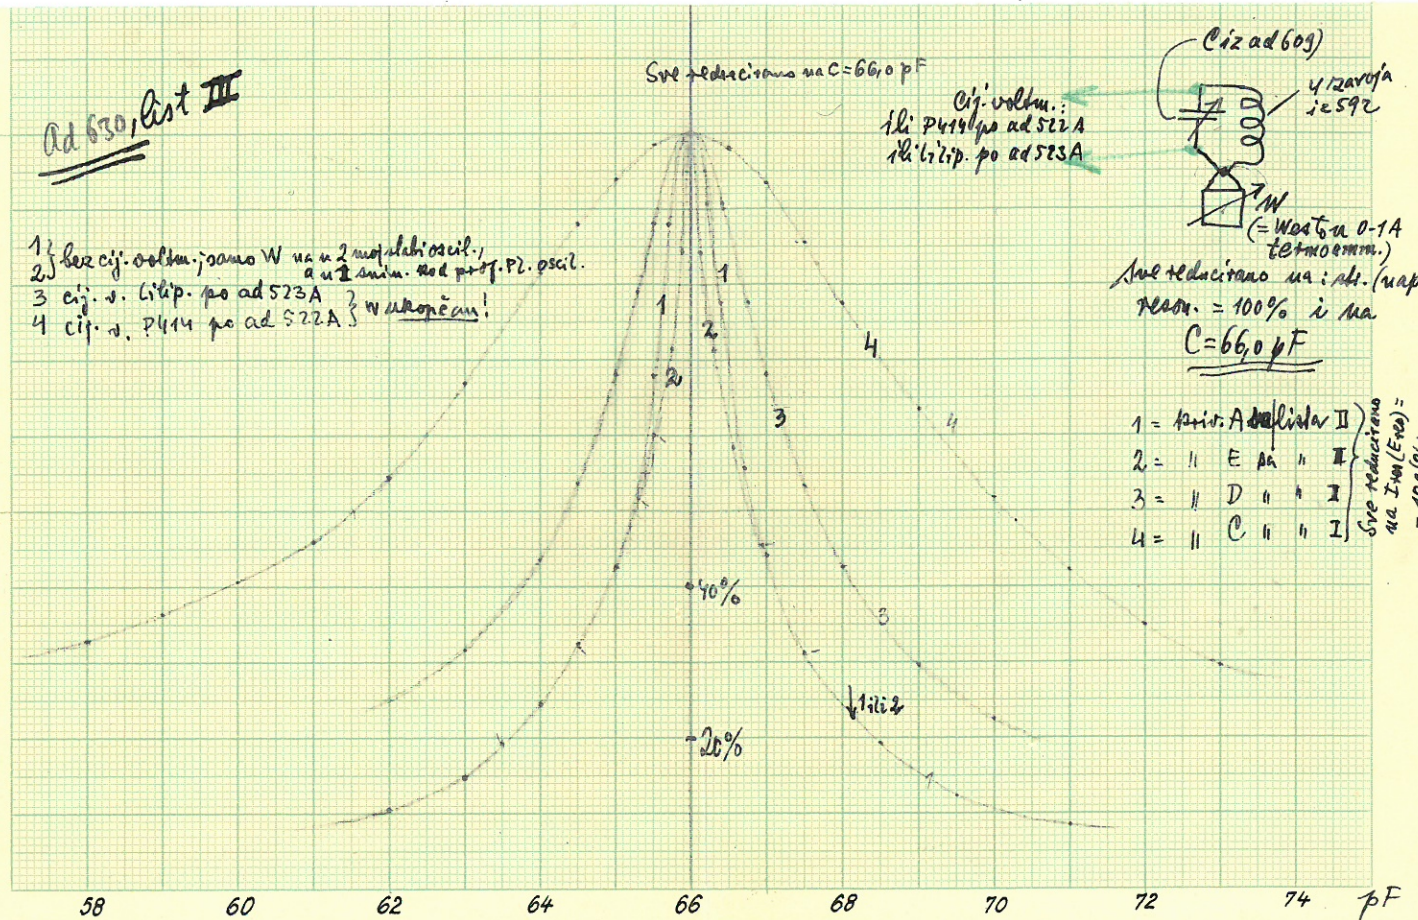 Ad 630, list III
Sve reducirano na C=66,0 pF
C iz ad 609)
4 zavoja
iz 592
Cij. voltm.:
ili P414 po ad 522A
ili Lilip. po ad 523A
W
(= Weston 0-1A
termoamm.)
Sve reducirano na
reson. = 100% i na
C=66,0 pF
1 } bez cij. voltm.; samo W na
2
3 cij. v. Lilip. po ad 523A } W ukopčan!
4 cij. v. P414 po ad 522A
1 = kriv. A lista II
2 = " E sa " II
3 = " D " " I
4 = " C " " I
Sve reducirano
1
1
2
2
3
4
4
3
40%
20%
1 ili 2
1
58 60 62 64 66 68 70 72 74 pF